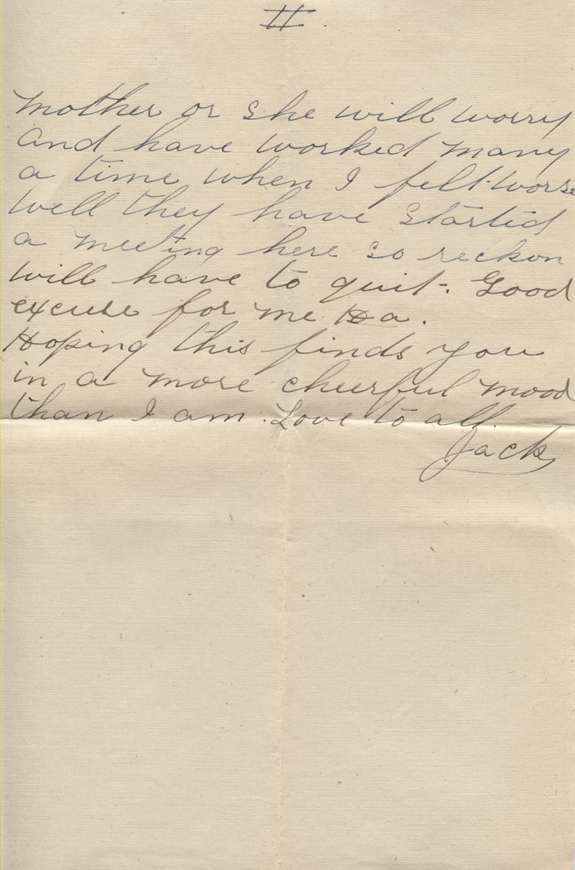 II.
Mother or she will worry
and have worked many
a time when I felt worse
well they have startid
a meeting here so reckon
will have to quit. Good
excuse for me Ha.
Hoping this finds you
in a more cheerful mood
than I am. Love to all.
Jack